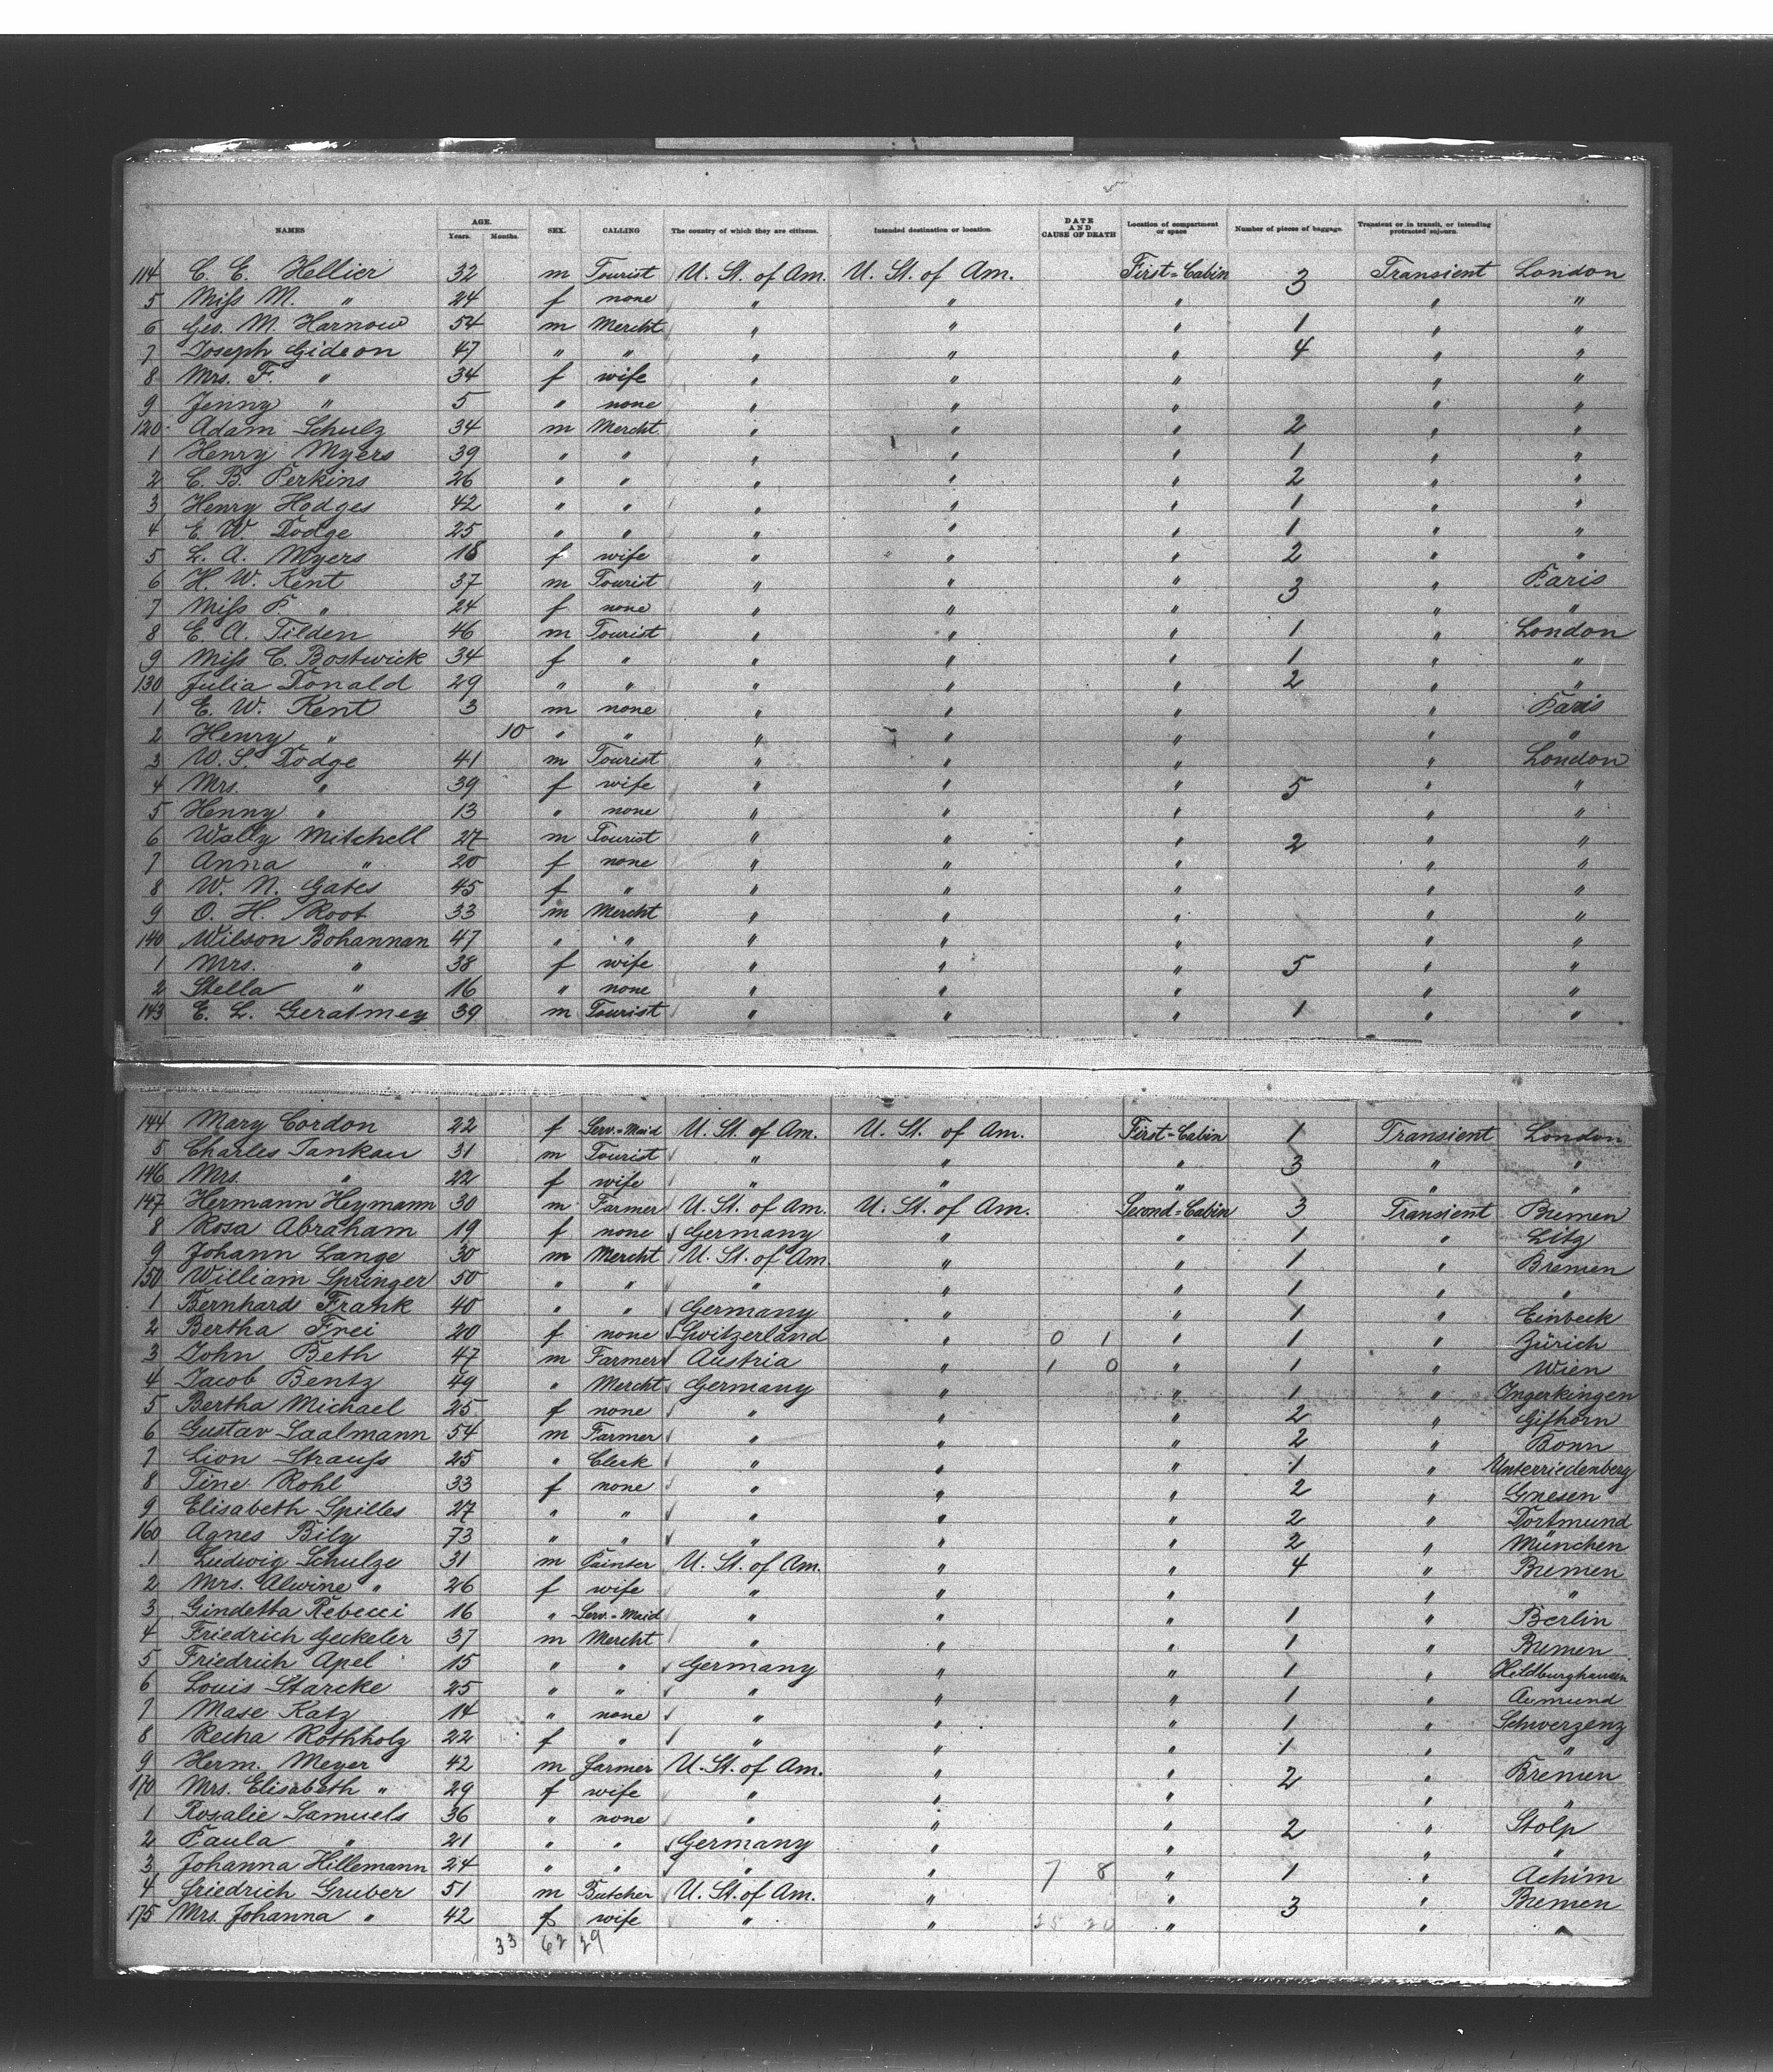 NAMES AGE. Years. Months. SEX. CALLING The country of which they are citizens. Intended destination or location. DATE AND CAUSE OF DEATH Location of compartment or space Number of pieces of baggage. Transient or in transit, or intending protracted sojourn.
114 C. E. Hellier 32 m Tourist U. St. of Am. U. St. of Am. First=Cabin 3 Transient London
5 Miss M. " 24 f none " " " " "
6 Geo. M. Harnow 54 m Mercht " " " 1 " "
7 Joseph Gideon 47 " " " " " 4 " "
8 Mrs. F. " 34 f wife " " " " "
9 Jenny " 5 " none " " " " "
120 Adam Schulz 34 m Mercht. " " " 2 " "
1 Henry Myers 39 " " " " " 1 " "
2 C. B. Perkins 26 " " " " " 2 " "
3 Henry Hodges 42 " " " " " 1 " "
4 E. W. Dodge 25 " " " " " 1 " "
5 L. A. Myers 18 f wife " " " 2 " "
6 H. W. Kent 37 m Tourist " " " 3 " Paris
7 Miss P. " 24 f none " " " " "
8 E. A. Tilden 46 m Tourist " " " 1 " London
9 Miss C. Bostwick 34 f " " " " 1 " "
130 Julia Donald 29 " " " " " 2 " "
1 E. W. Kent 3 m none " " " " Paris
2 Henry " 10 " " " " " " "
3 W. S. Dodge 41 m Tourist " " " " London
4 Mrs. " 39 f wife " " " 5 " "
5 Henny " 13 " none " " " " "
6 Wally Mitchell 27 m Tourist " " " 2 " "
7 Anna " 20 f none " " " " "
8 W. N. Gates 45 f " " " " " "
9 O. H. Root 33 m Mercht " " " " "
140 Wilson Bohannan 47 " " " " " " "
1 Mrs. " 38 f wife " " " 5 " "
2 Stella " 16 " none " " " " "
143 E. L. Geratmey 39 m Tourist " " " 1 " "
144 Mary Cordon 22 f Serv.=Maid U. St. of Am. U. St. of Am. First=Cabin 1 Transient London
5 Charles Tankau 31 m Tourist " " " 3 " "
146 Mrs. " 22 f wife " " " " "
147 Hermann Heymann 30 m Farmer U. St. of Am. U. St. of Am. Second=Cabin 3 Transient Bremen
8 Rosa Abraham 19 f none Germany " " 1 " Litz
9 Johann Lange 30 m Mercht U. St. of Am. " " 1 " Bremen
150 William Springer 50 " " " " " 1 " "
1 Bernhard Frank 40 " " Germany " " 1 " Einbeck
2 Bertha Frei 20 f none Switzerland " 0 1 " 1 " Zürich
3 John Beth 47 m Farmer Austria " 1 0 " 1 " Wien
4 Jacob Bentz 49 " Mercht Germany " " 1 " Ingerkingen
5 Bertha Michael 25 f none " " " 2 " Gifhorn
6 Gustav Saalmann 54 m Farmer " " " 2 " Bonn
7 Lion Strauss 25 " Clerk " " " 1 " Unterriedenberg
8 Tine Rohl 33 f none " " " 2 " Gnesen
9 Elisabeth Spilles 27 " " " " " 2 " Dortmund
160 Agnes Bily 73 " " " " " 2 " München
1 Ludwig Schulze 31 m Painter U. St. of Am. " " 4 " Bremen
2 Mrs. Alwine " 26 f wife " " " " "
3 Gindetta Rebecci 16 " Serv.=Maid " " " 1 " Berlin
4 Friedrich Geckeler 37 m Mercht " " " 1 " Bremen
5 Friedrich Apel 15 " " Germany " " 1 " Hildburghausen
6 Louis Starcke 25 " " " " " 1 " Aumund
7 Mase Katz 14 " none " " " 1 " Schwerzenz
8 Recha Rothholz 22 f " " " " 1 " "
9 Herm. Meyer 42 m Farmer U. St. of Am. " " 2 " Bremen
170 Mrs. Elisabeth " 29 f wife " " " " "
1 Rosalie Samuels 36 " none " " " 2 " Stolp
2 Paula " 21 " " Germany " " " "
3 Johanna Hillemann 24 " " " " 7 8 " 1 " Achim
4 Friedrich Gruber 51 m Butcher U. St. of Am. " " 3 " Bremen
175 Mrs. Johanna " 42 f wife " " 25 20 " " "
33 62 29